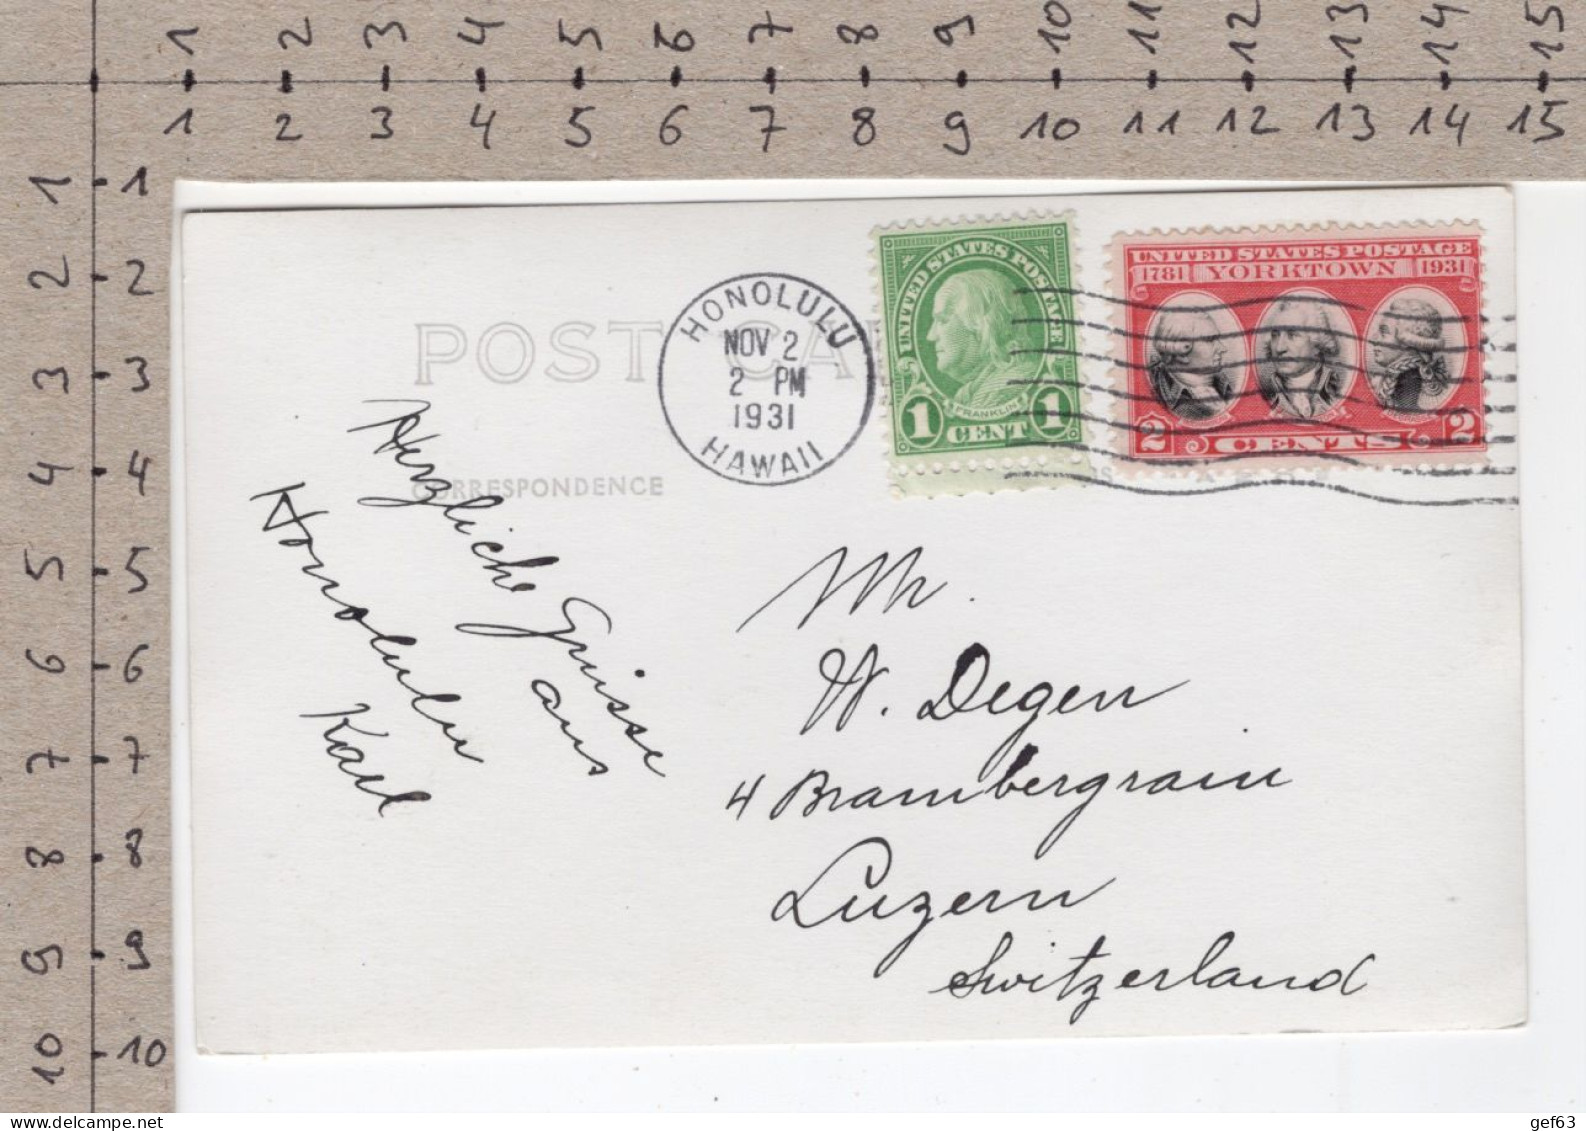 1 2 3 4 5 6 7 8 9 10 11 12 13 14 15
1 2 3 4 5 6 7 8 9 10 11 12 13 14 15
1 1
2 2
3 3
4 4
5 5
6 6
7 7
8 8
9 9
10 10
POST CA
CORRESPONDENCE
HONOLULU
NOV 2
2 PM
1931
HAWAII
UNITED STATES POSTAGE
FRANKLIN
1 CENT 1
UNITED STATES POSTAGE
1781 YORKTOWN 1931
2 CENTS 2
Herzliche Grüsse
aus
Honolulu
Karl
Mr.
W. Degen
4 Brambergrain
Luzern
Switzerland
delcampe.net
gef63